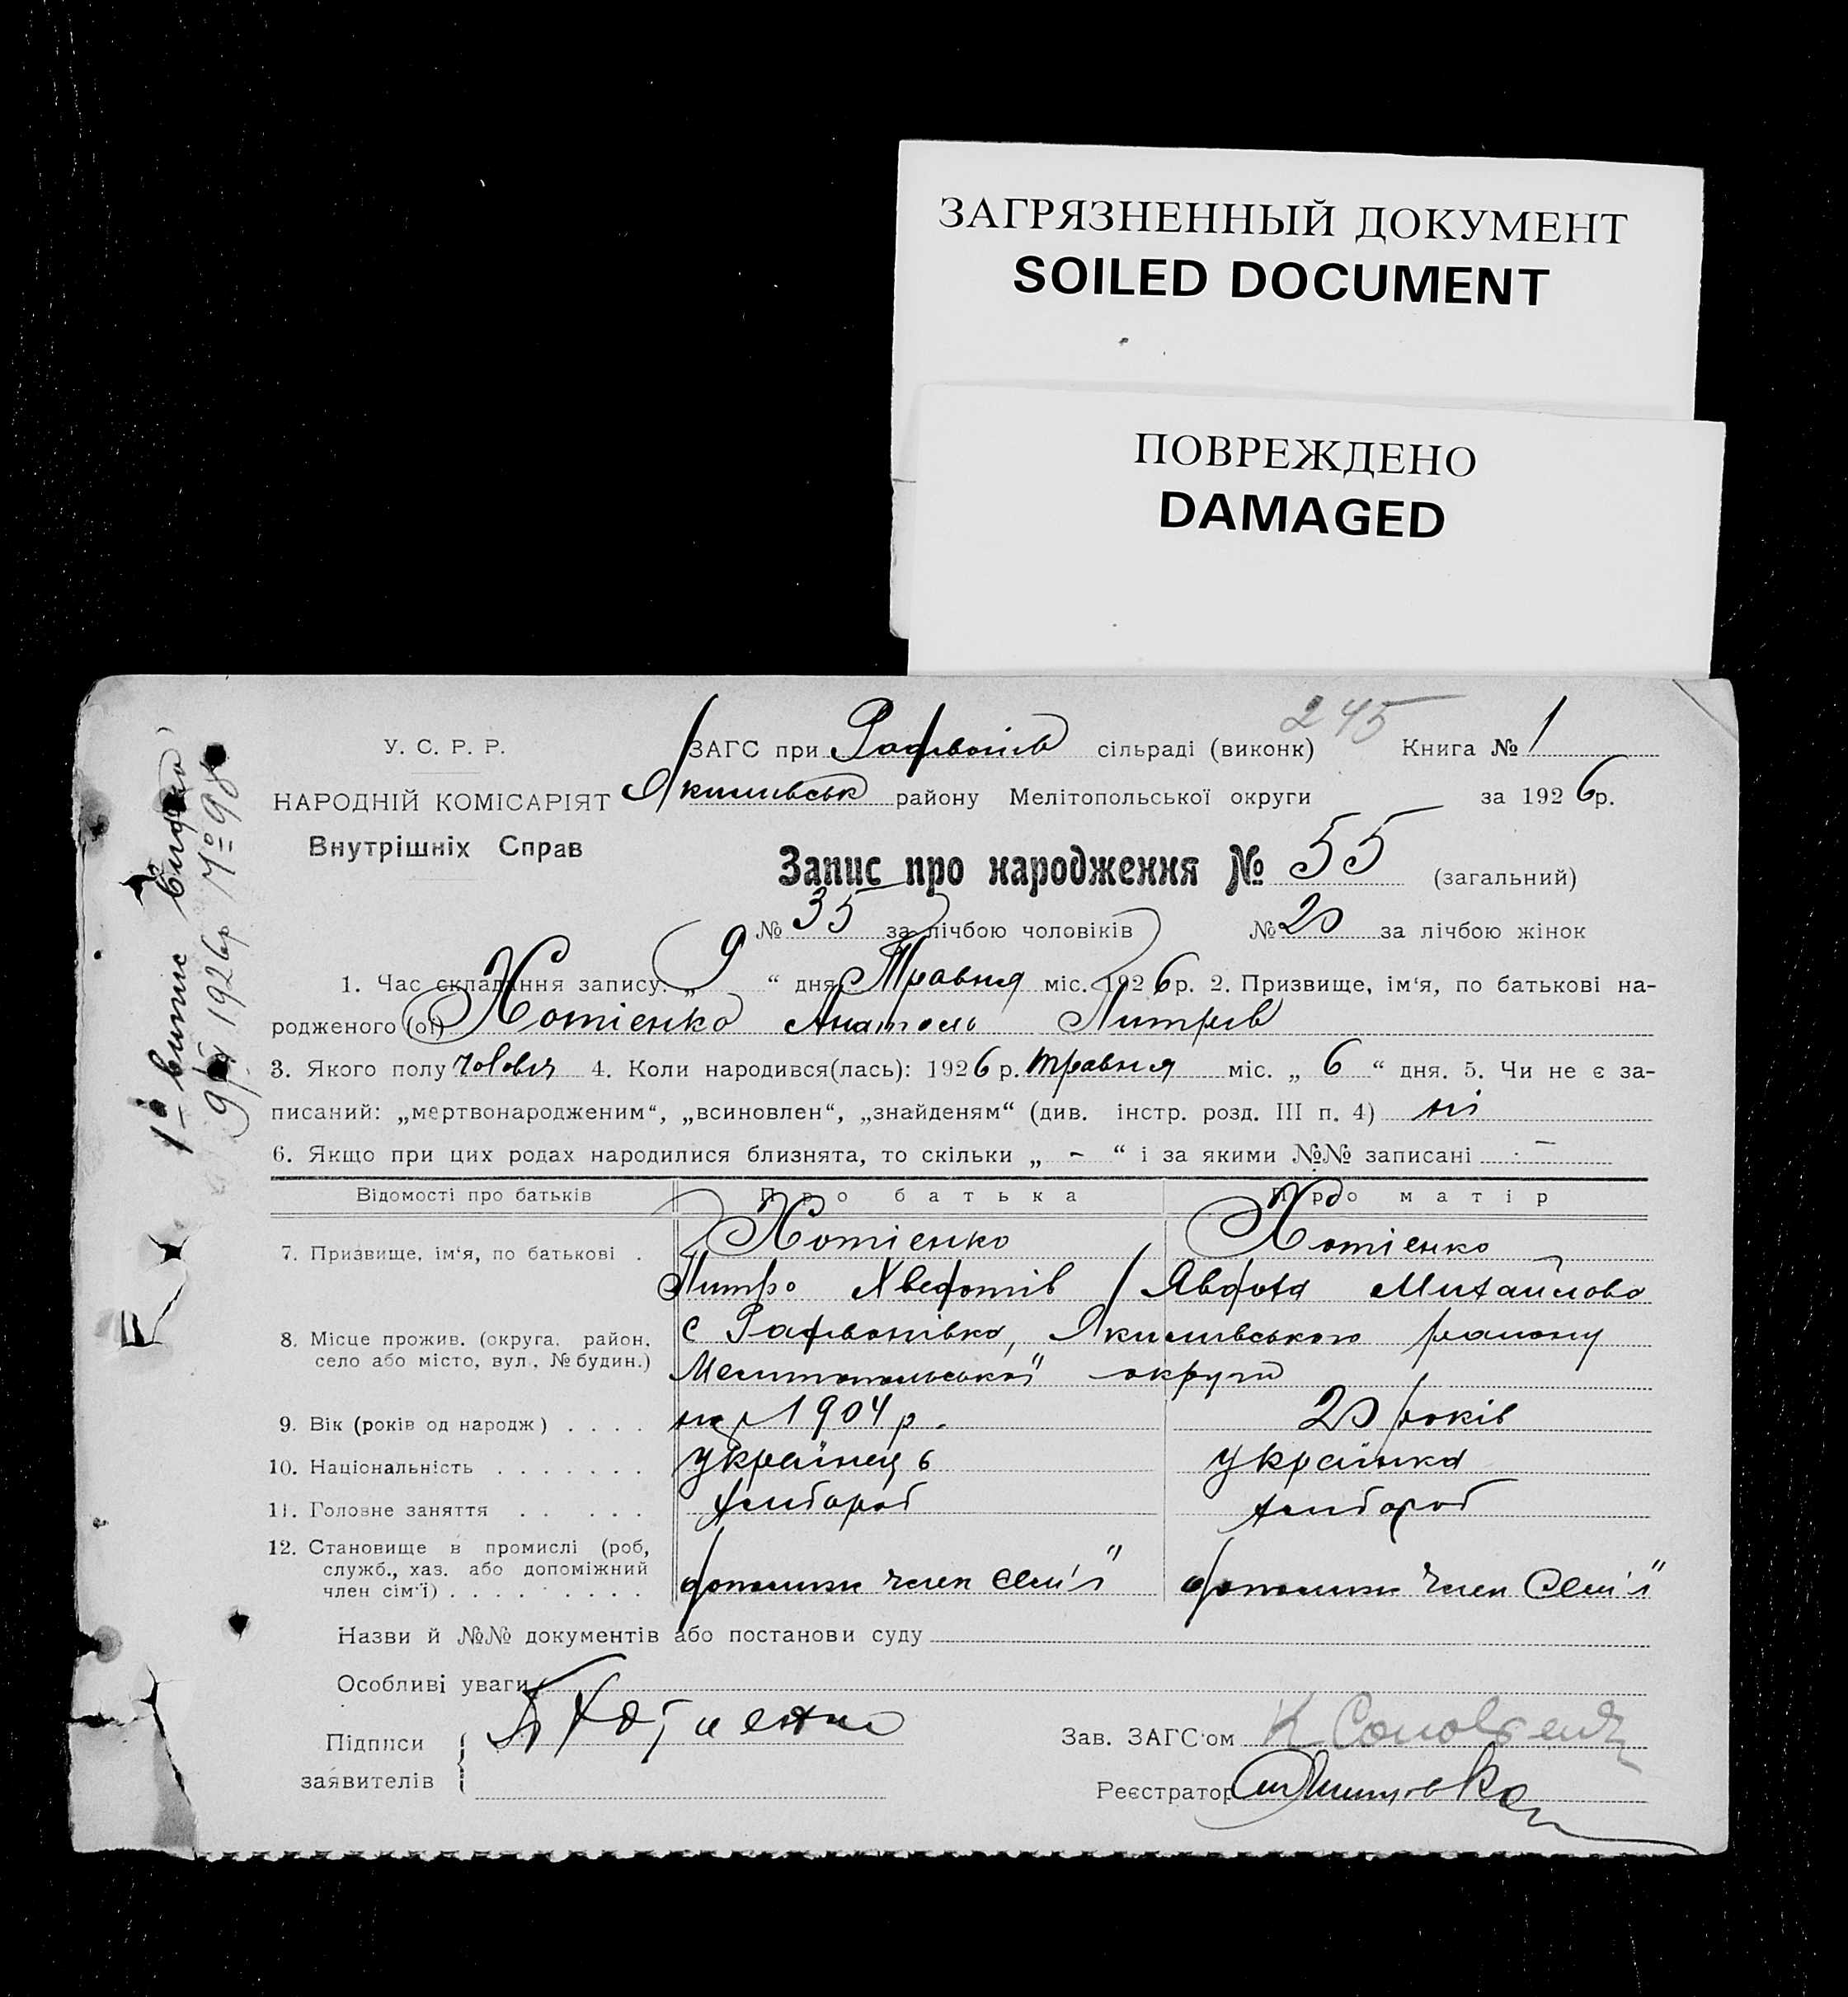 ЗАГРЯЗНЕННЫЙ ДОКУМЕНТ
SOILED DOCUMENT
ПОВРЕЖДЕНО
DAMAGED
245
У. С. Р. Р.
ЗАГС при сільраді (виконк) Книга № 1
НАРОДНІЙ КОМІСАРІЯТ Якимивськ району Мелітопольської округи за 1926р.
Внутрішніх Справ
Запис про народження № 55 (загальний)
№ 35 за лічбою чоловіків № 20 за лічбою жінок
1. Час складання запису: „ 9 “ дня Травня міс. 1926р. 2. Призвище, ім‘я, по батькові на-
родженого (ої) Хотіенко Анатоль
3. Якого полу 4. Коли народився(лась): 1926р. травня міс. „ 6 “ дня. 5. Чи не є за-
писаний: „мертвонародженим“, „всиновлен“, „знайденям“ (див. інстр. розд. III п. 4) ні
6. Якщо при цих родах народилися близнята, то скільки „ - “ і за якими №№ записані -
Відомості про батьків Про батька Про матір
7. Призвище, ім‘я, по батькові . Хотіенко Хотіенко
Питро Явдоха Михайлова
8. Місце прожив. (округа, район, с Якимивського району
село або місто, вул., № будин.) Мелитопольскої округи
9. Вік (років од народж) . . . . 1904 р. 20 років
10. Національність . . . . . . . українець українка
11. Головне заняття . . . . . хлибороб хлибороб
12. Становище в промислі (роб,
служб., хаз. або допоміжний
член сім‘ї) . . . . . . . . . допомижн член сем'ї допомижн член Сем'ї
Назви й №№ документів або постанови суду
Особливі уваги
Підписи
заявителів
Зав. ЗАГС‘ом
Реєстратор
1й випис
1926р № 98